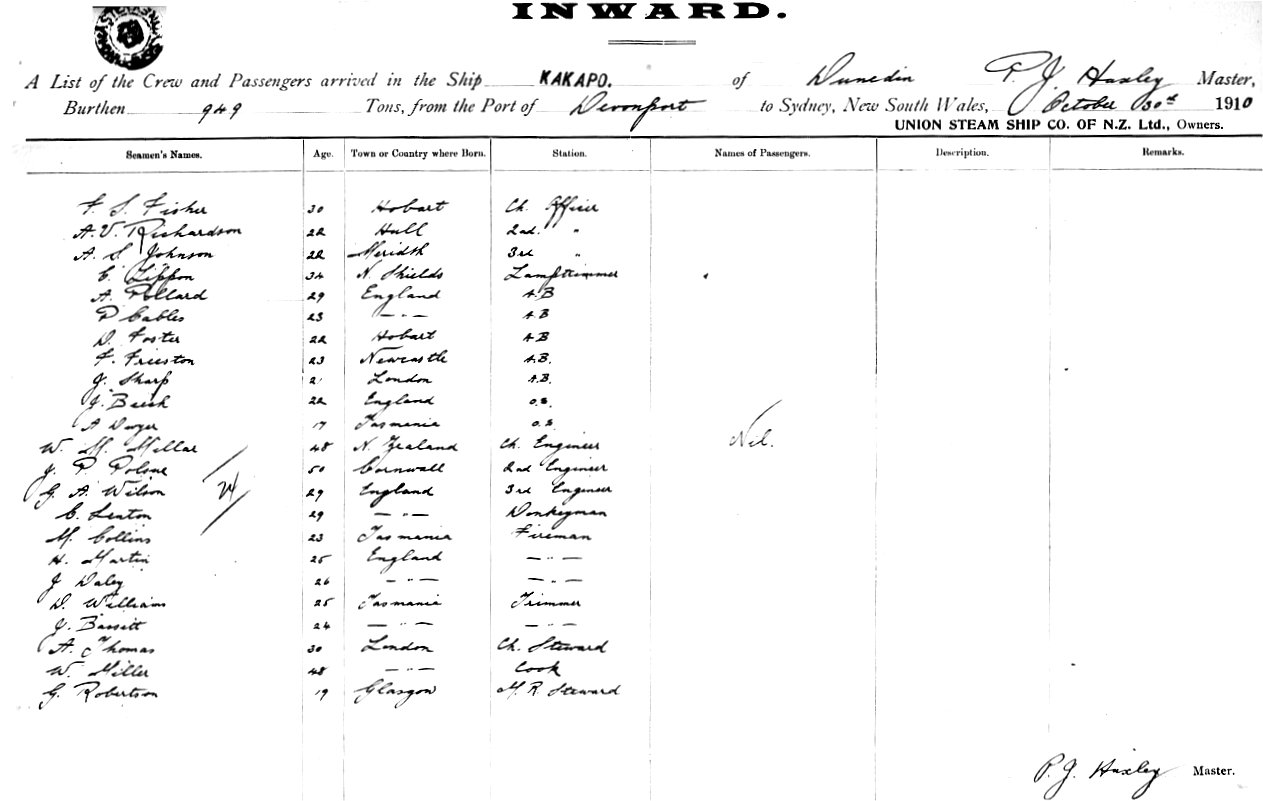 INWARD.
A List of the Crew and Passengers arrived in the Ship KAKAPO. of Dunedin P. J. Huxley Master,
Burthen 949 Tons, from the Port of Devonport to Sydney, New South Wales, October 30th 1910
UNION STEAM SHIP CO. OF N.Z. Ltd., Owners.
Seamen's Names. Age. Town or Country where Born. Station. Names of Passengers. Description. Remarks.
F. S. Fisher 30 Hobart Ch. Officer
A. V. Richardson 22 Hull 2nd. "
A. S. Johnson 22 3rd "
C. Lippon 34 N. Shields Lamptrimmer
A. Pollard 29 England A.B
P Cables 23 — " — A.B
D. Foster 22 Hobart A B
F. Frieston 23 Newcastle A.B.
J. Sharp 21 London A.B.
J. Beech 22 England O.S.
A Dwyer 17 Tasmania O.S.
W. M. Millar 48 N. Zealand Ch. Engineer Nil.
J. P. Polsue 50 Cornwall 2nd Engineer
G. A. Wilson 24 29 England 3rd Engineer
C. Lenton 29 — " — Donkeyman
M. Collins 23 Tasmania Fireman
H. Martin 25 England — " —
J Daley 26 — " — — " —
D. Williams 25 Tasmania Trimmer
J. Bassett 24 — " — — " —
A. Thomas 30 London Ch. Steward
W. Miller 48 — " — Cook
G. Robertson 19 Glasgow M. R. Steward
P. J. Huxley Master.